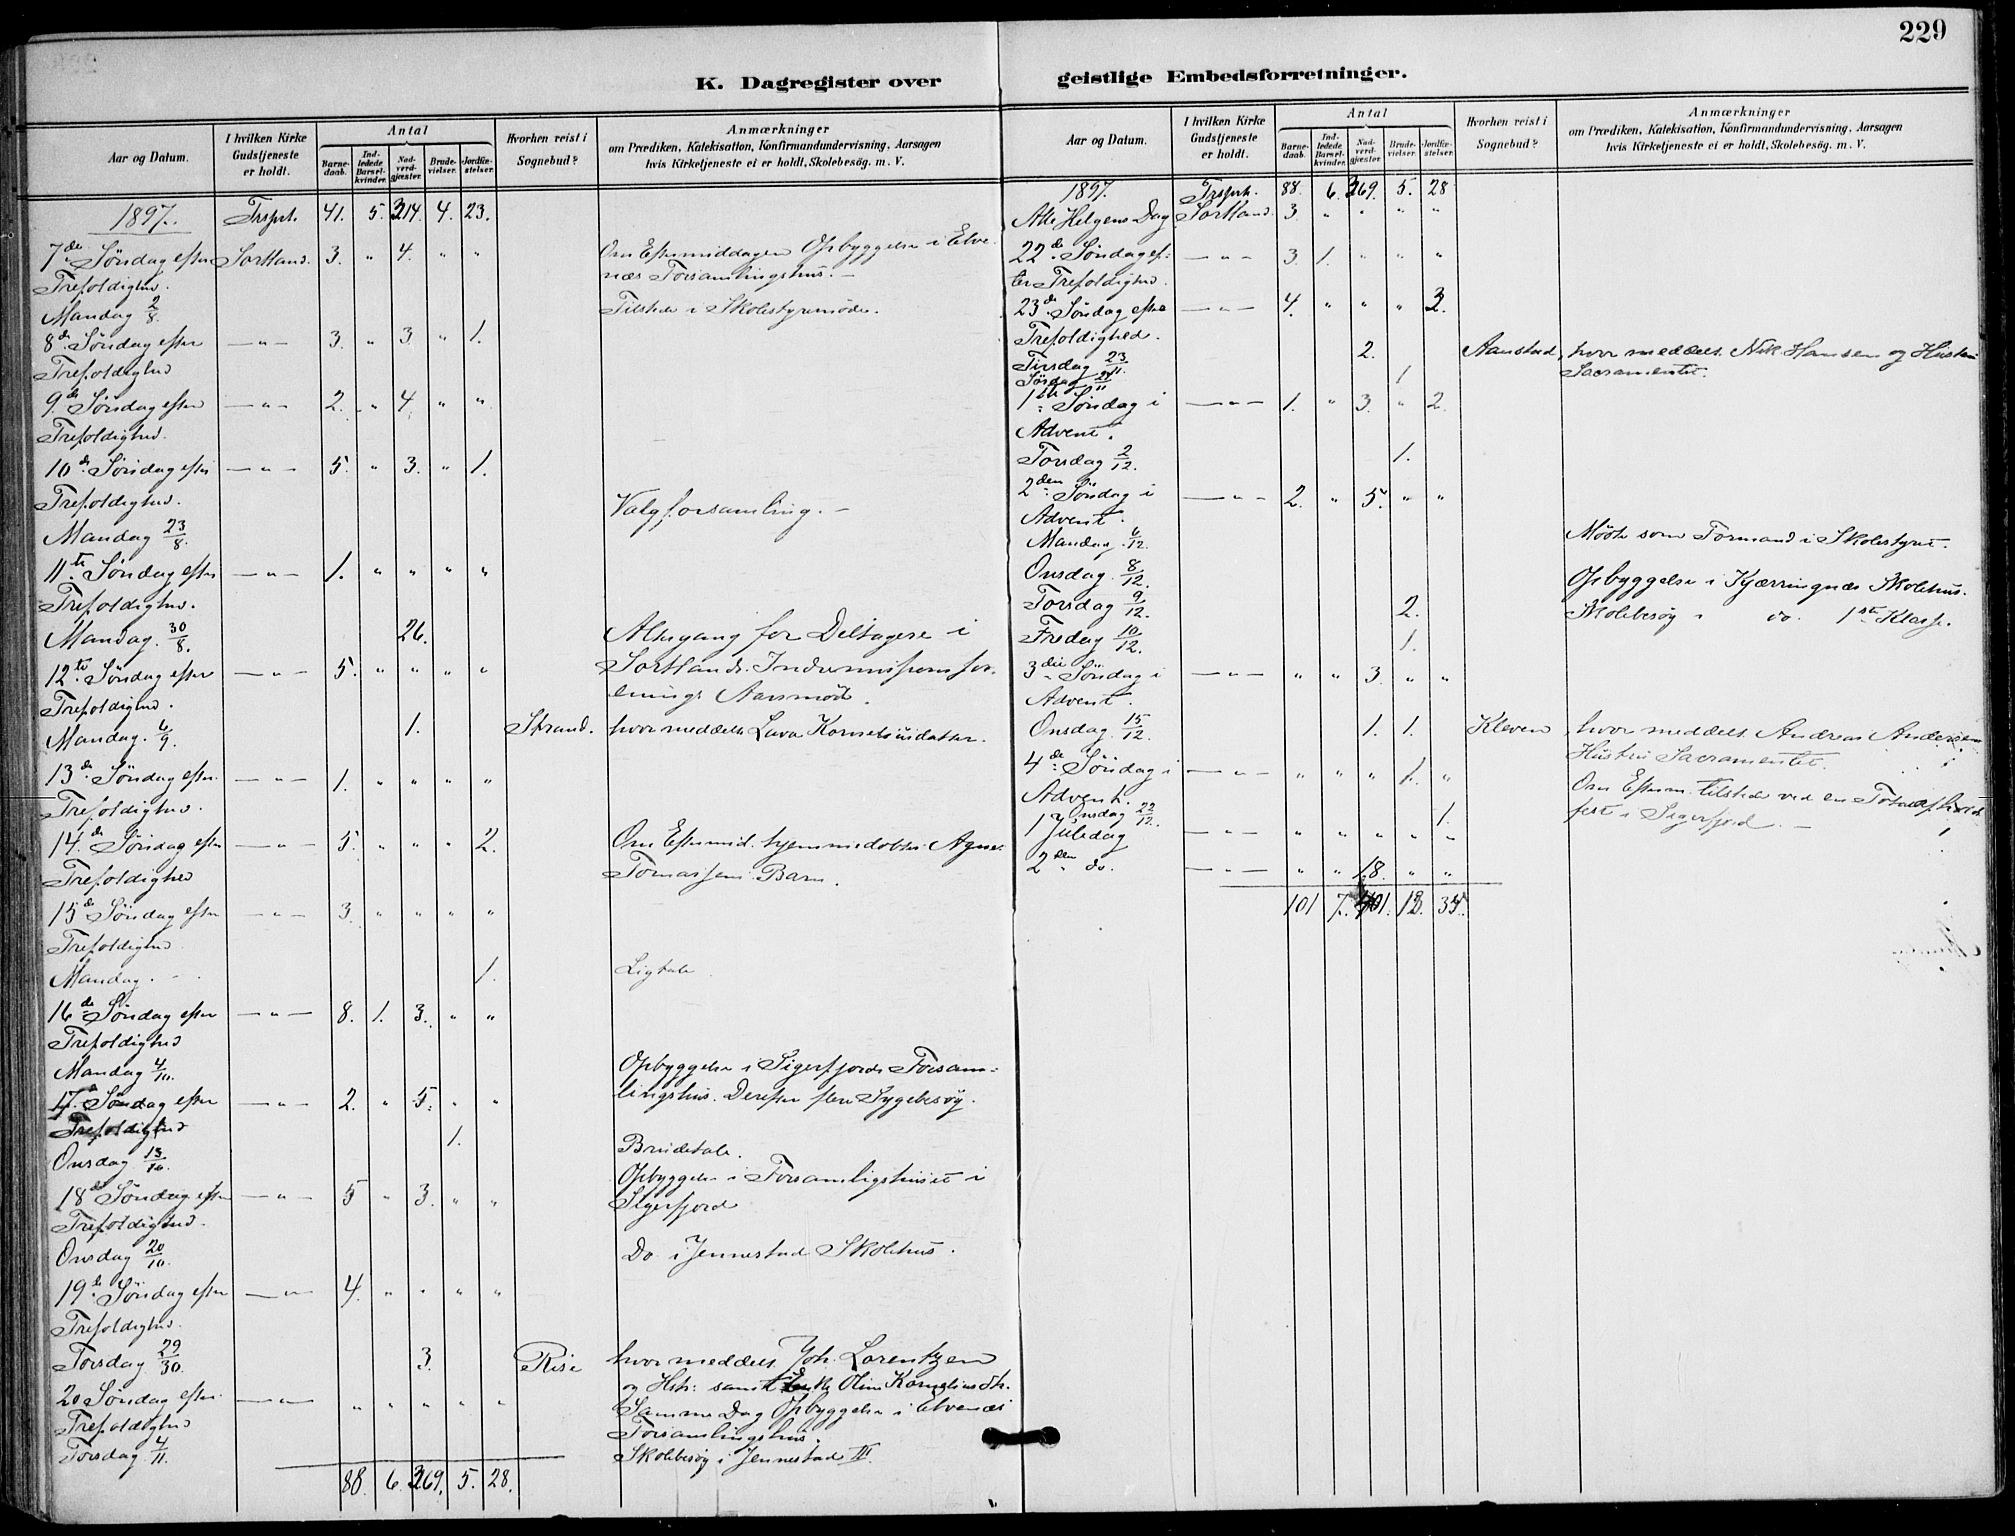 229
K. Dagregister over geistlige Embedsforretninger.
Aar og Datum.
I hvilken Kirke Gudstjeneste er holdt.
Antal
Barne-daab.
Ind-ledede Barsel-kvinder.
Nad-verd-gjæster.
Brude-vielser.
Jordfæ-stelser.
Hvorhen reist i Sognebud?
Anmærkninger
om Prædiken, Katekisation, Konfirmandundervisning, Aarsagen
hvis Kirketjeneste ei er holdt, Skolebesøg. m. V.
1897. Trsprt. 41. 5. 214. 4. 23.
7de Søndag efter Sortland. 3. " 4. " " Om Eftermiddagen Opbyggelse i Elve-
Trefoldighed. næs Forsamlingshus. –
Mandag 2/8. Tilstede i Skolestyremøde.
8de Søndag efter — " — 3. " 3. " 1.
Trefoldighed
9de Søndag efter — " — 2. " 4. " "
Trefoldighed.
10de Søndag efter — " — 5. " 3. " 1.
Trefoldighed.
Mandag 23/8. Valgforsamling. –
11te Søndag efter — " — 1. " " " "
Trefoldighed.
Mandag. 30/8. 26. Altergang for Deltagere i
12te Søndag efter — " — 5. " " " " Sortlands Indremissionsfor-
Trefoldighed. enings Aarsmøde.
Mandag. 6/9. 1. Strand. hvor meddelt Lava Korneliusdatter.
13de Søndag efter — " — 1. " " " "
Trefoldighed.
14de Søndag efter — " — 5. " " " 2. Om Eftermid. hjemmedøbt
Trefoldighed Tomassens Barn.
15de Søndag efter — " — 3. " " " "
Trefoldighed
Mandag. 1. Ligtale
16de Søndag efter — " — 8. 1. 3. " "
Trefoldighed
Mandag 4/10. Opbyggelse i Sigerfjords Forsam-
17. Søndag efter — " — 2. " 5. " " lingshus. Derefter flere Sygebesøg.
Trefoldighed
Onsdag 13/10. 1. Brudetale.
Opbyggelse i Forsamligshuset i
18de Søndag efter — " — 5 " 3. " " Sigerfjord
Trefoldighed.
Onsdag 20/10. Do i Jennestad Skolehus.
19de Søndag efter — " — 4. " " " "
Trefoldighed.
Torsdag 29/30. 3. Rise hvor meddelt Joh. Lorentzen
og Hstr. samt Enke Oline Korneliusdtr.
20 Søndag efter — " — " " " " " Samme Dag Opbyggelse i Elvenæs
Trefoldighed Forsamlingshus.
Torsdag 4/11. Skolebesøg i Jennestad III.
88. 6. 269. 5. 28.
Aar og Datum.
I hvilken Kirke Gudstjeneste er holdt.
Antal
Barne-daab.
Ind-ledede Barsel-kvinder.
Nad-verd-gjæster.
Brude-vielser.
Jordfæ-stelser.
Hvorhen reist i Sognebud?
Anmærkninger
om Prædiken, Katekisation, Konfirmandundervisning, Aarsagen
hvis Kirketjeneste ei er holdt, Skolebesög. m. V.
1897. Trsprt. 88. 6. 269. 5. 28
Alle Helgens Dag Sortland. 3 " " " "
22de Søndag ef- — " — 3. 1. " " "
ter Trefoldighed.
23de Søndag efter — " — 4. " " " 2.
Trefoldighed.
Tirsdag 23/11. 2. Aanstad, hvor meddelt Nik Hansen og Hustru
1 Sacramentet.
1ste Søndag i — " — 1. " 3. " 2.
Advent.
Torsdag 2/12. 1.
2den Søndag i — " — 2. " 5. " "
Advent.
Mandag 6/12. Møde som Formand i Skolestyret.
Onsdag 8/12. Opbyggelse i Kjærringnæs Skolehus.
Torsdag 9/12. 2. Skolebesøg i do. 1ste Klasse.
Fredag 10/12. 1.
3die Søndag i — " — " " 3. " "
Advent.
Onsdag 15/12. 1. 1. Kleven hvor meddelt Andreas Andersens
Hustru Sacramentet.
4de Søndag i — " — " " " 1. "
Advent. Om Efterm. tilstede ved en
Onsdag 22/12. 1. fest i Sigerfjord. –
1 Juledag — " — " " " " "
2den do. — " — " " 18. " "
101 7. 12. 35.